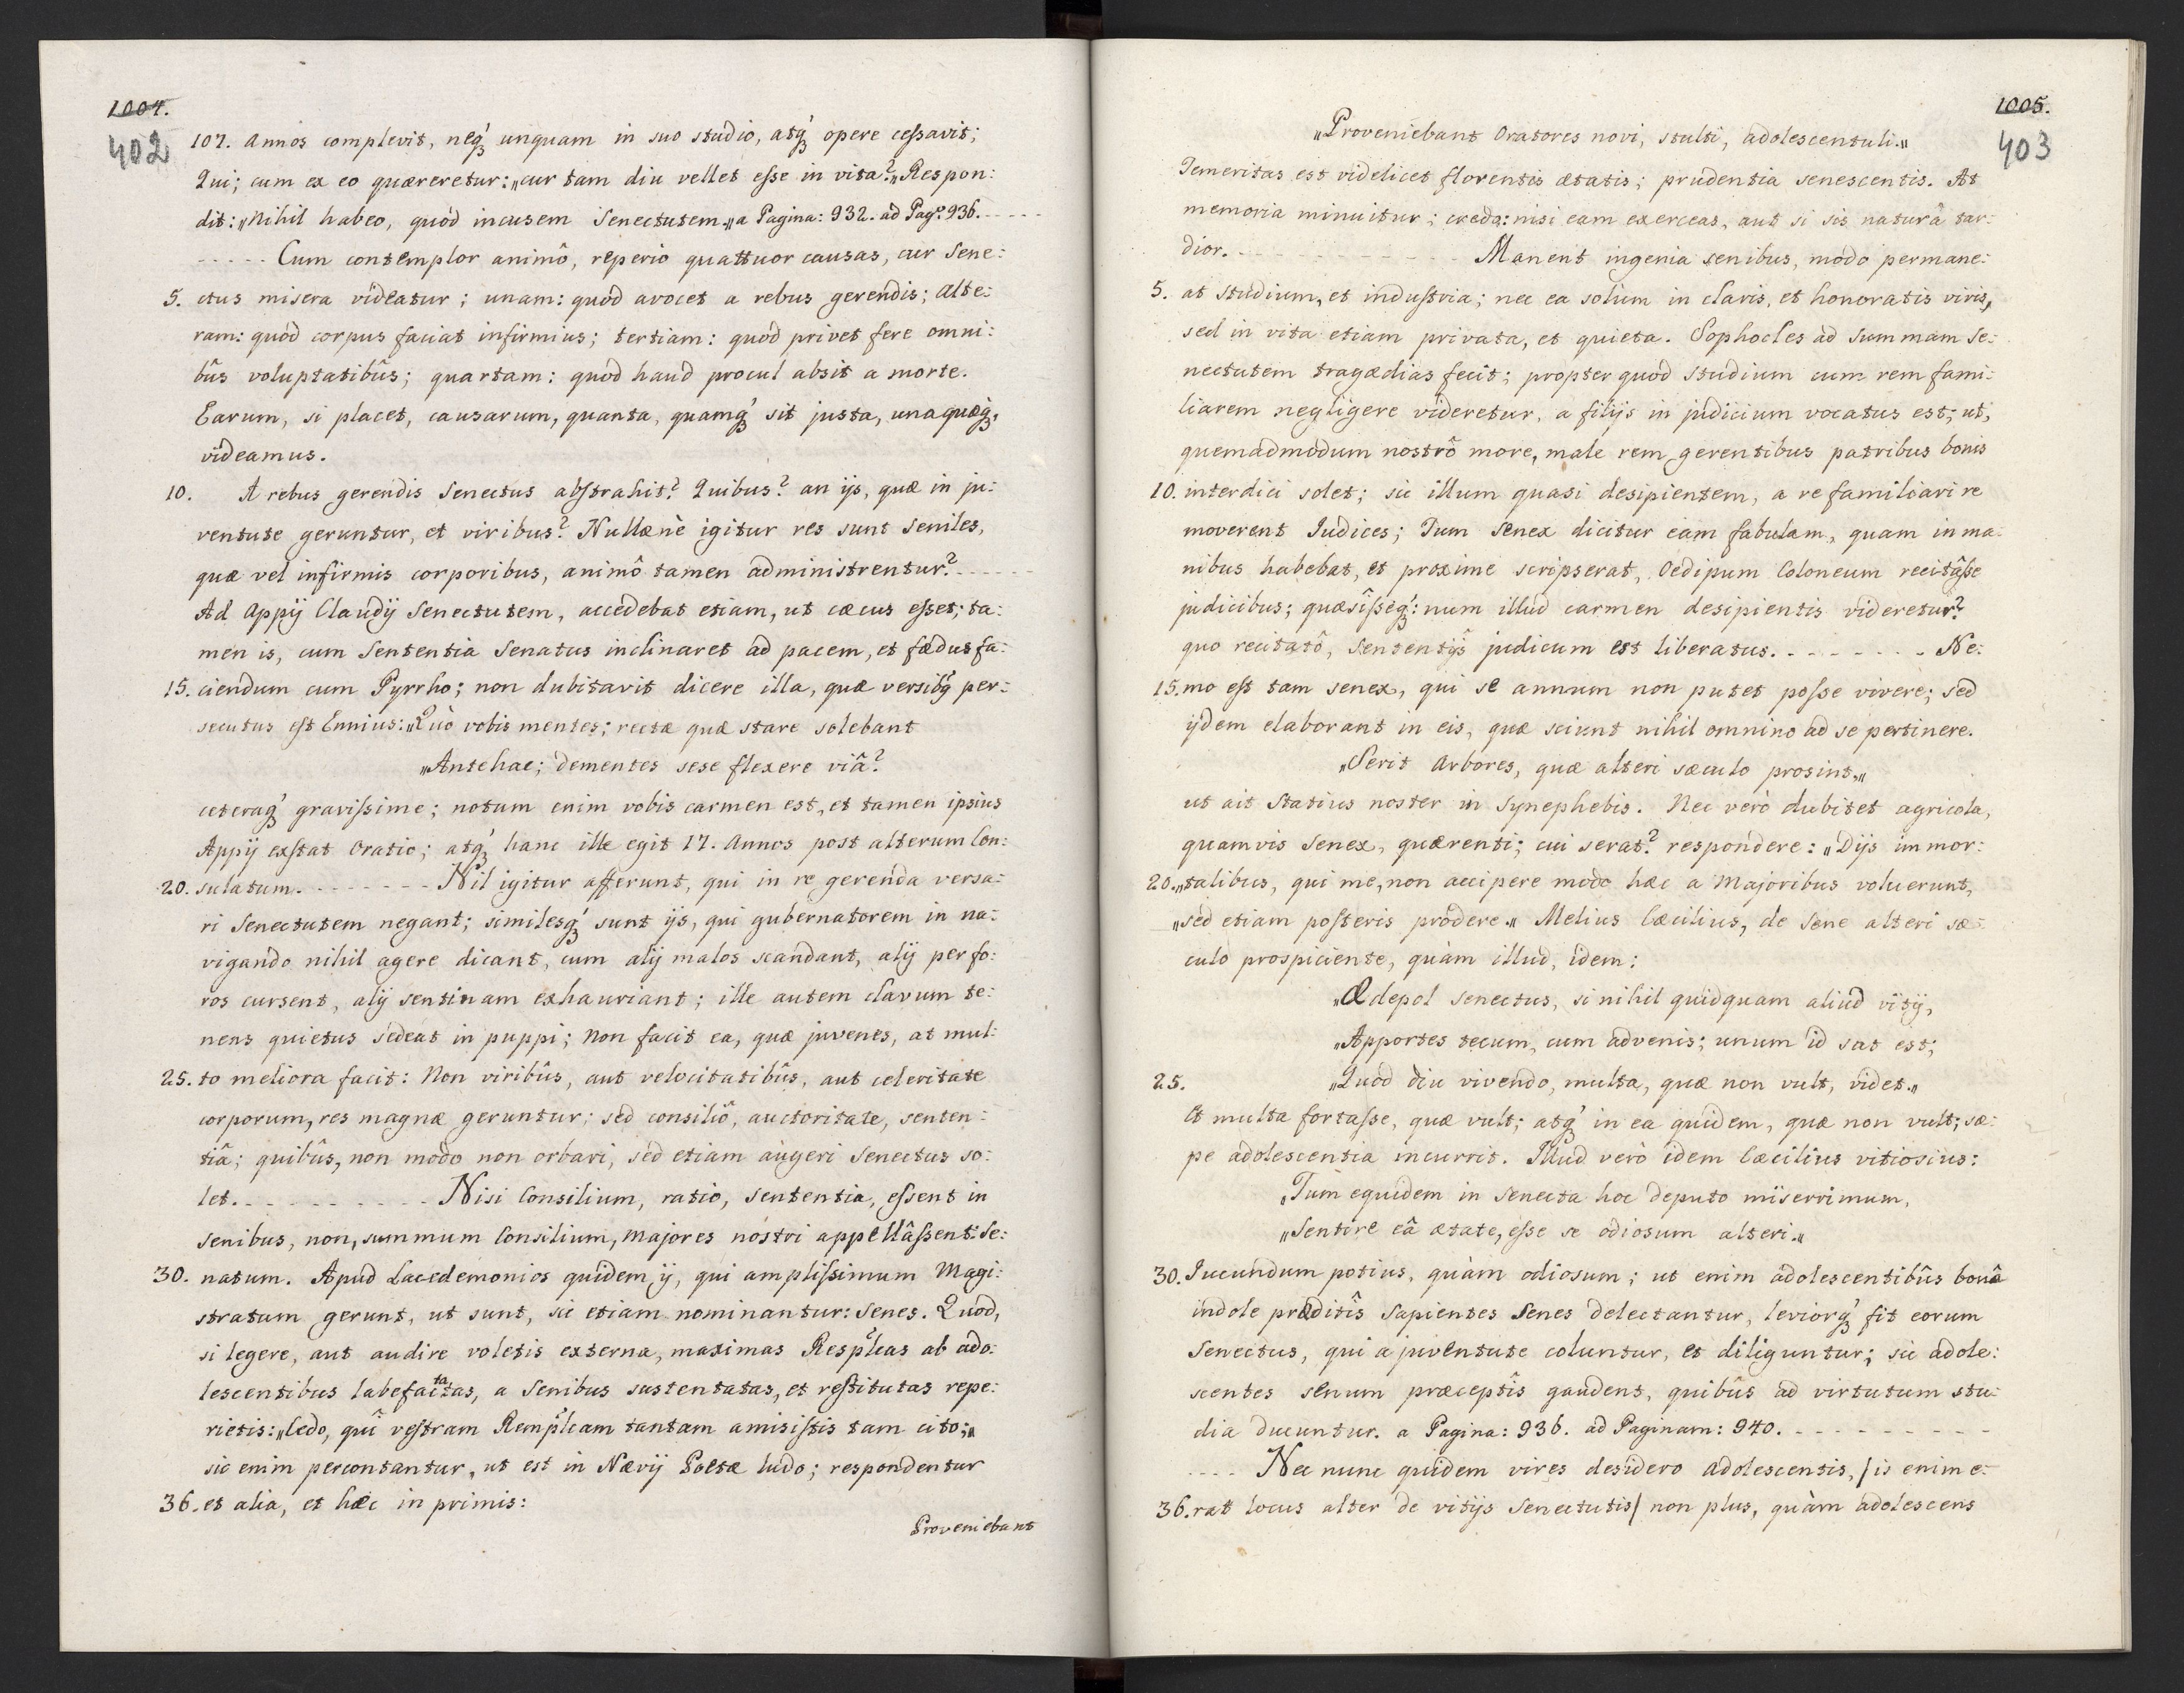 1004.
402
107. Annos complevit, neq́ꝫ unquam in suo studio, atq́ꝫ opere ceſsavit;
Qui; cum ex eo quæreretur: „cur tam diu vellet eſse in vita?„ Respon:
dit: „Nihil habeo, quòd incusem Senectutem.„ a Pagina: 932. ad Pag: 936. - - - -
- - - - - Cum contemplor animô, reperio quattuor causas, cur Sene:
5. ctus misera videatur; unam: quòd avocet a rebus gerendis; alte:
ram: quòd corpus faciat infirmius; tertiam: quòd privet fere omni:
bûs voluptatibûs; quartam: quòd haud procul absit a morte.
Earum, si placet, causarum, quanta, quamq́ꝫ sit justa, unaquæqꝫ,
videamus.
10. A rebus gerendis Senectus abſtrahit? Quibus? an ijs, quæ in ju:
ventute geruntur, et viribus? Nullænè igitur res sunt Seniles,
quæ vel infirmis corporibus, animô tamen administrentur? - - - -
Ad Appij Claudij Senectutem, accedebat etiam, ut cæcus eſset; ta:
men is, cum Sententia Senatus inclinaret ad pacem, et fædus fa:
15. ciendum cum Pyrrho; non dubitavit dicere illa, quæ versibq́ per:
secutus eſt Ennius: „Quò vobis mentes; rectæ quæ stare solebant
„Antehac; dementes sese flexere viâ?
ceteraq́ꝫ graviſsime; notum enim vobis carmen est, et tamen ipsius
Appij exſtat Oratio; atq́ꝫ hanc ille egit 17. Annos post alterum Con:
20. sulatum. - - - - - - - Nil igitur afferunt, qui in re gerenda versa:
ri Senectutem negant; similesq́ꝫ sunt ijs, qui gubernatorem in na:
vigando nihil agere dicant, cum alij malos scandant, alij per fo:
ros cursent, alij sentinam exhauriant; ille autem clavum te:
nens quietus sedeat in puppi; Non facit ea, quæ juvenes, at mul:
25. to meliora facit: Non viribûs, aut velocitatibûs, aut celeritate
corporum, res magnæ geruntur; sed consiliô, auctoritate, senten:
tiâ; quibûs, non modo non orbari, sed etiam augeri Senectus so:
let. - - - - - - - - - - Nisi Consilium, ratio, sententia, eſsent in
senibus, non, summum Consilium, Majores nostri appellâſsent: Se:
30. natum. Apud Lacedemonios quidem ij, qui ampliſsimum Magi:
stratum gerunt, ut sunt, sic etiam nominantur: Senes. Quòd,
si legere, aut audire voletis externa, maximas Resplcas ab ado:
lescentibus labefactatas, a Senibus sustentatas, et reſtitutas repe:
rietis: „Cedo, quî veſtram Remplcam tantam amisiſtis tam cito;„
sic enim percontantur, ut est in Nævij Poetæ ludo; respondentur
36. et alia, et hæc in primis:
Proveniebant
1005.
403
„Proveniebant Oratores novi, stulti, adolescentuli.„
Temeritas est videlicet florentis ætatis; prudentia senescentis. At
memoria minuitur; credo: nisi eam exerceas, aut si sis naturâ tar:
dior. - - - - - - - - - - - - Manent ingenia senibus, modo permane:
5. at studium, et induſtria; nec ea solùm in claris, et honoratis viris,
sed in vita etiam privata, et quieta. Sophocles ad summam Se:
nectutem tragædias fecit; propter quod studium cum rem fami:
liarem negligere videretur, a filijs in judicium vocatus est; ut,
quemadmodum nostrô more, male rem gerentibus patribus bonis
10. interdici solet; sic illum quasi desipientem, a re familiari re
moverent Judices; Tum Senex dicitur eam fabulam, quam in ma:
nibus habebat, et proxime scripserat, Oedipum Coloneum recitâſse
judicibus; quæsîſseq́ꝫ: num illud carmen desipientis videretur?
quo recitatô, Sententijs judicum est liberatus. - - - - - - - - Ne:
15. mo eſt tam senex, qui se annum non putet poſse vivere; sed
ijdem elaborant in eis, quæ sciunt nihil omnino ad se pertinere.
„Serit Arbores, quæ alteri sæculo prosint,„
ut ait Statius noster in Synephebis. Nec verò dubitet agricola,
quamvis Senex, quærenti; cui serat? respondere: „Dijs immor:
20. „talibus, qui me, non accipere modo hæc a Majoribus voluerunt,
„sed etiam poſteris prodere.„ Melius Cæcilius, de Sene alteri sæ:
culo prospiciente, quàm illud, idem:
„Ædepol senectus, si nihil quidquam aliud vitij,
„Apportes tecum, cum advenis; unum id sat est;
25. „Quòd diu vivendo, multa, quæ non vult, videt.„
Et multa fortaſse, quæ vult; atq́ꝫ in ea quidem, quæ non vult; sæ:
pe adolescentia incurrit. Illud verò idem Cæcilius vitiosius:
„Tùm equidem in Senecta hoc deputo miserrimum,
„Sentire eâ ætate, eſse se odiosum alteri.„
30. Jucundum potius, quàm odiosum; ut enim adolescentibûs bonâ
indole præditîs Sapientes Senes delectantur, leviorq́ꝫ fit eorum
Senectus, qui a juventute coluntur, et diliguntur; sic adole:
scentes senum præceptîs gaudent, quibûs ad virtutum stu:
dia ducuntur. a Pagina: 936. ad Paginam: 940. - - - - - - - - -
- - - - Nec nunc quidem vires desidero adolescentis, / is enim e:
36. rat locus alter de vitijs Senectutis / non plus, quàm adolescens